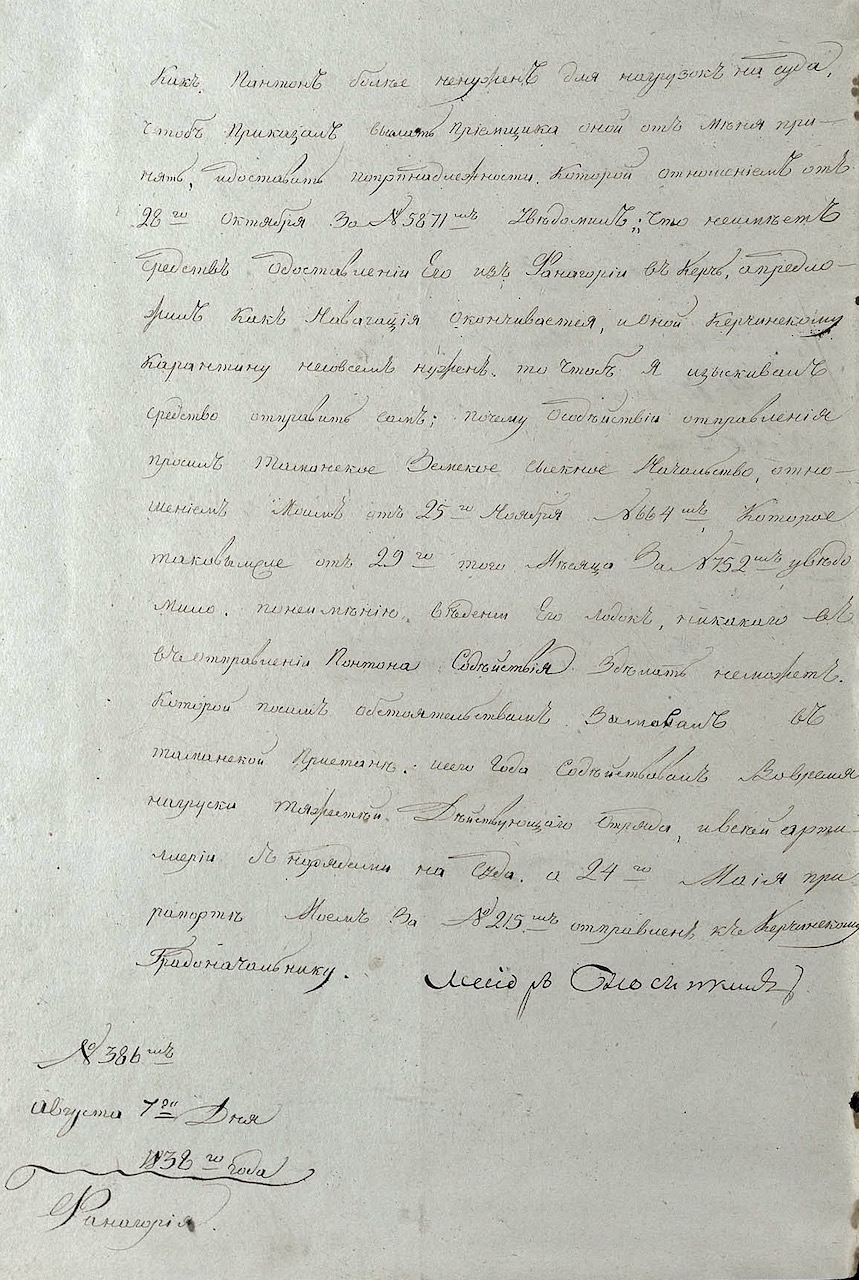 Какъ Пантонъ болѣе ненуженъ для нагрузокъ на суда,
чтобъ приказалъ выслать пріемщика оной отъ меня при-
нять, идоставить попринадлежности. Которой отношеніемъ отъ
28го Октября За №5871мъ увѣдомилъ; что неимѣетъ
средствъ одоставленіи Его изъ Фанагоріи въ Керчь, апредло-
жилъ какъ Навагація Окончивается, ионой Керчинскому
Карантину несовсемъ нуженъ. то чтобъ я изыскивалъ
средство отправить самъ; почему Особѣйствіи отправленія
просилъ Таманское Земское сыскное Начальство, отно-
шеніемъ Моимъ отъ 25го Ноября №664мъ Которое
таковымже отъ 29го того Мѣсяца За №752мъ увѣдо
мило. понеимѣнію вѣденіи Его лодокъ, никакаго въ
въ отправленіи Понтона Содѣйствія Здѣлать неможетъ.
Которой посимъ обстоятельствамъ Замовалъ въ
таманской Пристанѣ. исего Года Содѣйствовалъ Вовремя
нагруски тяжестей Дѣйствующаго Отряда, ивсей арти-
леріи снарядами на Суда. а 24го Маія при
рапортѣ Моемъ За №215мъ отправленъ къ Керчинскому
Градоначальнику.
Меиоръ
№386мъ
Августа 7го Дня
1838го года
Фанагорія.